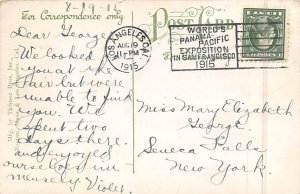 8-19-15
For Correspondence only
POST CARD
Dear George,
We looked
you at the
Fair but were
unable to find
you. We
spent two
days there
and enjoyed
ourselves im
mensely Violet.
LOS ANGELES, CAL.
AUG 19
11-PM
1915
WORLD'S
PANAMA PACIFIC
EXPOSITION
IN SAN FRANCISCO
1915
Miss Mary Elizabeth
George.
Seneca Falls
New York.